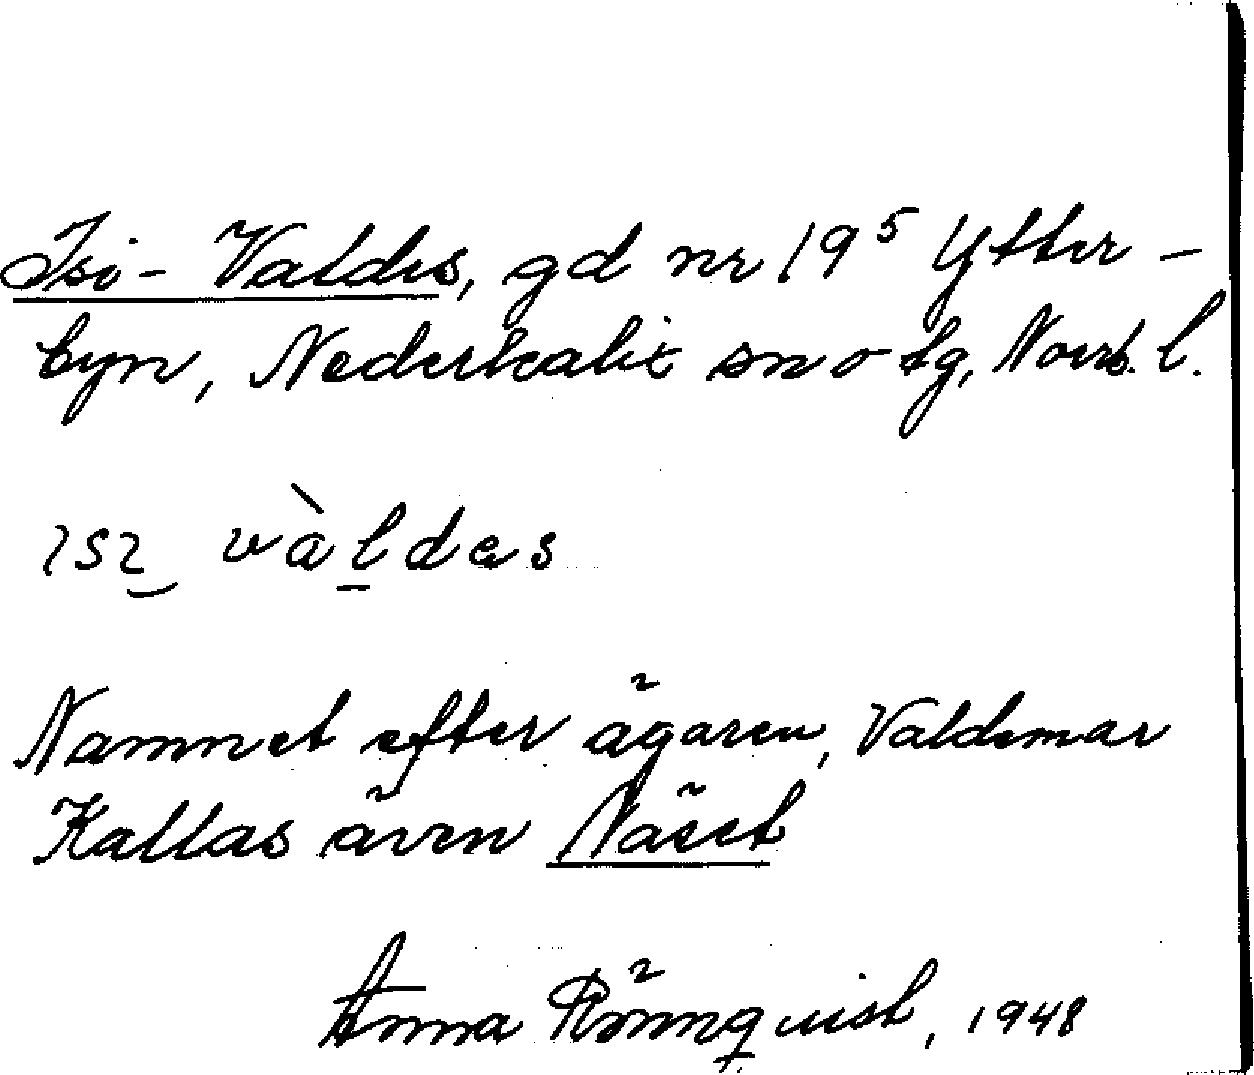 Isi-Valdes, gd nr 19⁵ Ytter-
byn, Nederkalix sn o tg, Norrb. l.
ɩsɩ‿ vàl̠dəs
Namnet efter ägaren, Valdemar
Kallas även Näset
Anna Rönnquist, 1948